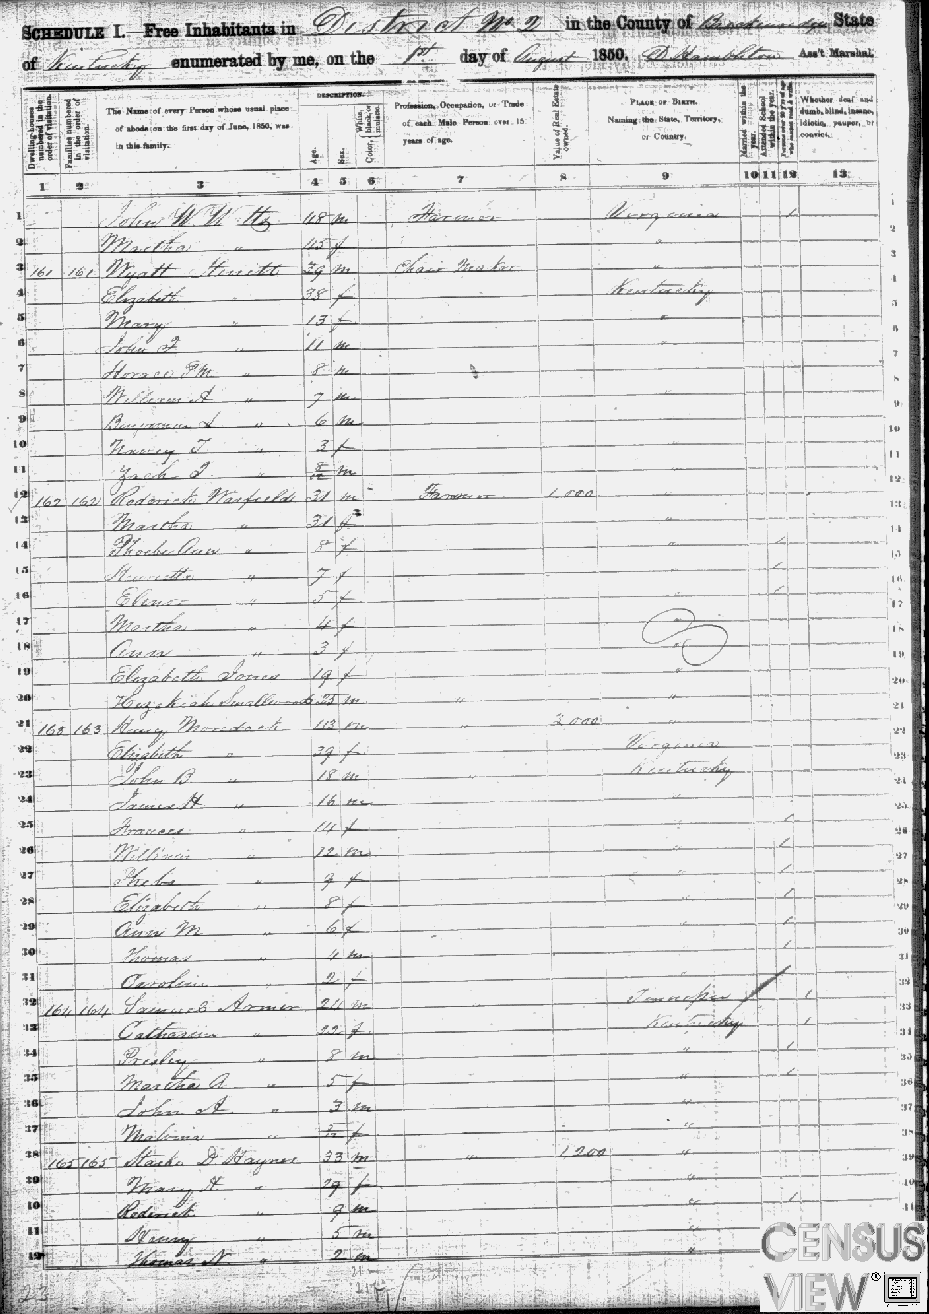 SCHEDULE I. Free Inhabitants in District No 2 in the County of Breckenridge State
of Kentucky enumerated by me, on the 1st day of August 1850. D Hambleton Ass't Marshal.
Dwelling-houses numbered in the order of visitation.
Families numbered in the order of visitation.
The Name of every Person whose usual place of abode on the first day of June, 1850, was in this family.
DESCRIPTION.
Age.
Sex.
Color, White, black, or mulatto.
Profession, Occupation, or Trade of each Male Person over 15 years of age.
Value of Real Estate owned.
PLACE OF BIRTH.
Naming the State, Territory, or Country.
Married within the year.
Attended School within the year.
Persons over 20 y'rs of age who cannot read & write.
Whether deaf and dumb, blind, insane, idiotic, pauper, or convict.
1 2 3 4 5 6 7 8 9 10 11 12 13
1 John W 48 m Farmer Virginia 1
2 Martha " 45 f "
3 161 161 Wyatt 39 m Chair Maker "
4 Elizabeth " 38 f Kentucky
5 Mary " 13 f "
6 John " 11 m
7 Horace " 8 m
8 William A " 7 m
9 Benjamin " 6 m
10 Nancy " 3 f "
11 Zach " m "
12 162 162 Roderick Warfield 31 m Farmer 1,000 "
13 Martha " 31 f "
14 Phoebe Ann " 8 f " 1
15 Henrietta " 7 f " 1
16 " 5 f " 1
17 Martha " 4 f "
18 Ann " 3 f "
19 Elizabeth Jones 19 f "
20 Hezekiah Smallwood 25 m " "
21 163 163 Henry 43 m " 2000 "
22 Elizabeth " 39 f Virginia
23 John B " 18 m " Kentucky
24 James H " 16 m "
25 Frances " 14 f " 1
26 William " 12 m " 1
27 Phebe " 9 f " 1
28 Elizabeth " 8 f " 1
29 Ann M " 6 f " 1
30 Thomas " 4 m " 1
31 Caroline " 2 f "
32 164 164 Samuel Armer 24 m " Tennessee 1
33 Catharine " 22 f Kentucky 1
34 Presley " 8 m " 1
35 Martha A " 5 f " 1
36 John A " 3 m "
37 Malvina " f "
38 165 165 D Haynes 33 m " 1,200 "
39 Mary A " 29 f "
40 Roderick " 9 m " 1
41 Henry " 5 m "
42 Thomas N " 2 m "
CENSUS VIEW®